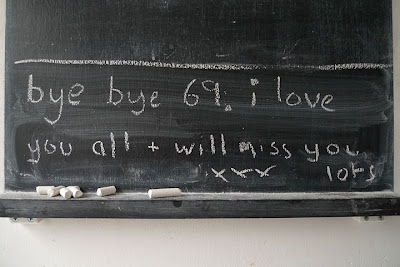 bye bye 69. i love
you all + will miss you
xxx lots